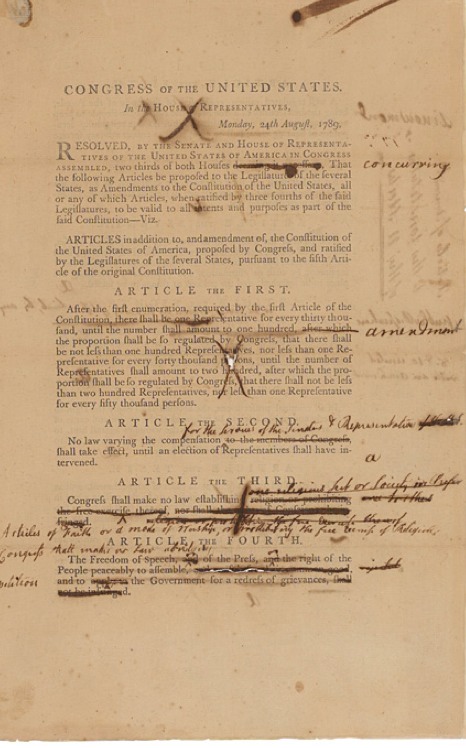 CONGRESS OF THE UNITED STATES.
In the HOUSE of REPRESENTATIVES,
Monday, 24th August, 1789,
RESOLVED, BY THE SENATE AND HOUSE OF REPRESENTA-
TIVES OF THE UNITED STATES OF AMERICA IN CONGRESS
ASSEMBLED, two thirds of both Houses That concurring
the following Articles be proposed to the Legislatures of the several
States, as Amendments to the Constitution of the United States, all
or any of which Articles, when ratified by three fourths of the said
Legislatures, to be valid to all intents and purposes as part of the
said Constitution—Viz.
ARTICLES in addition to, and amendment of, the Constitution of
the United States of America, proposed by Congress, and ratified
by the Legislatures of the several States, pursuant to the fifth Arti-
cle of the original Constitution.
ARTICLE THE FIRST.
After the first enumeration, required by the first Article of the
Constitution, there shall be one Representative for every thirty thou-
sand, until the number shall amount to one hundred, after which amendment
the proportion shall be so regulated by Congress, that there shall
be not less than one hundred Representatives, nor less than one Re-
presentative for every forty thousand persons, until the number of
Representatives shall amount to two hundred, after which the pro-
portion shall be so regulated by Congress, that there shall not be less
than two hundred Representatives, nor less than one Representative
for every fifty thousand persons.
ARTICLE THE SECOND.
for the services of the Senators & Representatives
No law varying the compensation to the members of Congress,
shall take effect, until an election of Representatives shall have in-
tervened.
a
ARTICLE THE THIRD.
one religious sect or society in
Congress shall make no law establishing religion or prohibiting
the free exercise thereof, nor shall the
fringed.
Articles of Faith or a mode of Worship, or prohibiting the free exercise of Religion,
ARTICLE THE FOURTH.
Congress shall make no law abridging
The Freedom of Speech, or of the Press, and the right of the
People peaceably to assemble,
petition
and to the Government for a redress of grievances, shall
not be infringed.